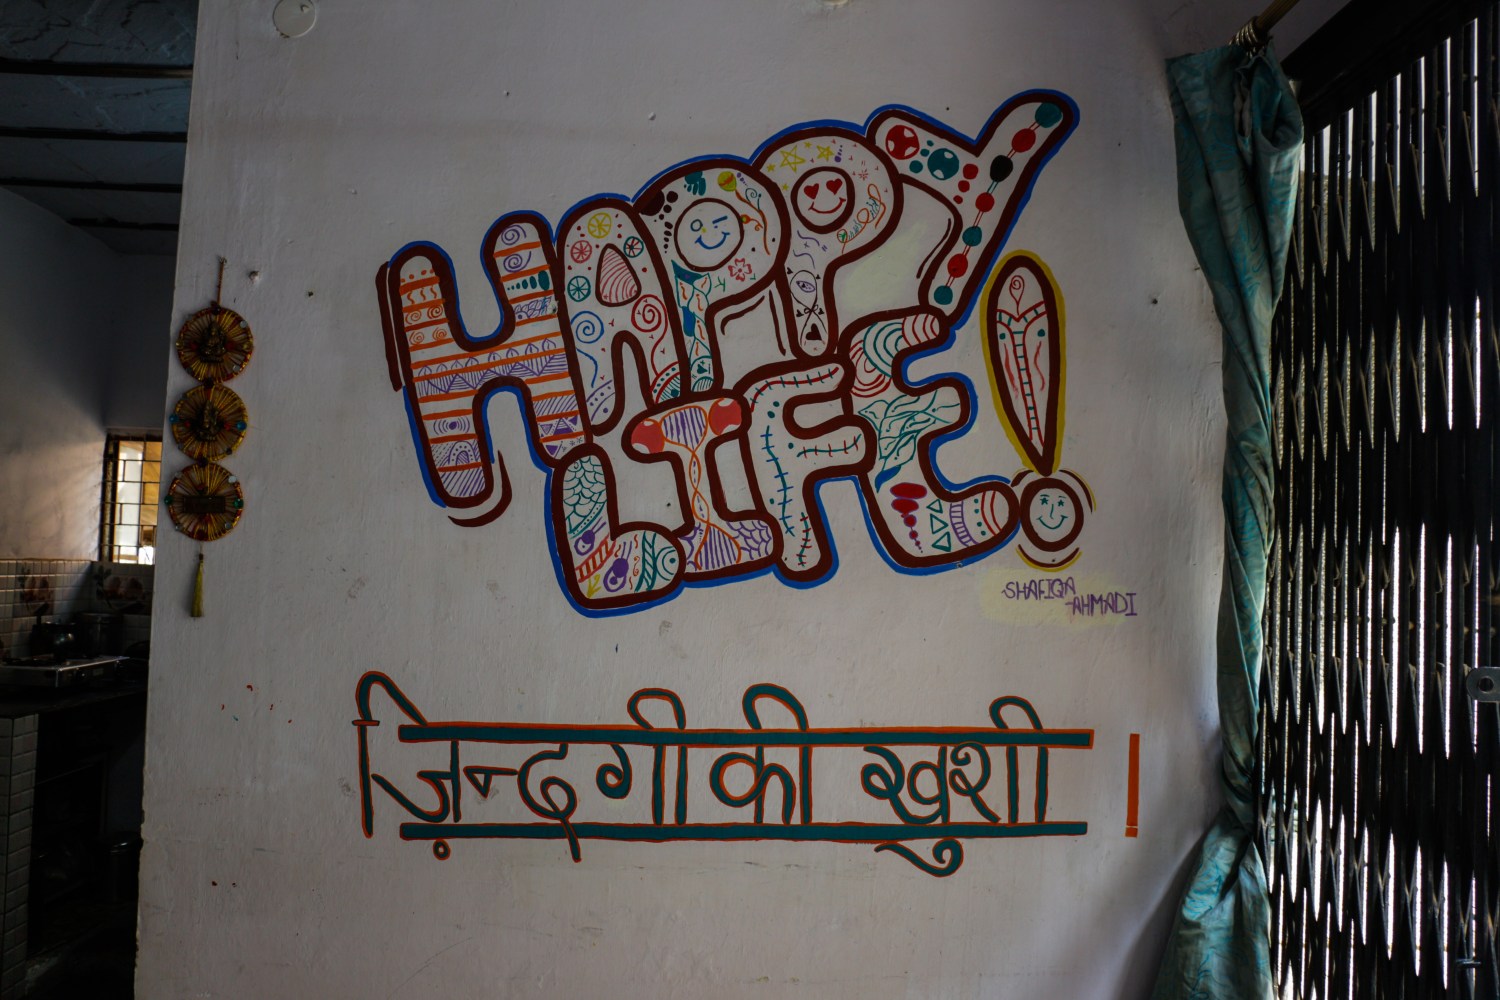 HAPPY
LIFE!
SHAFIQA
AHMADI
ज़िन्दगी की खुशी !